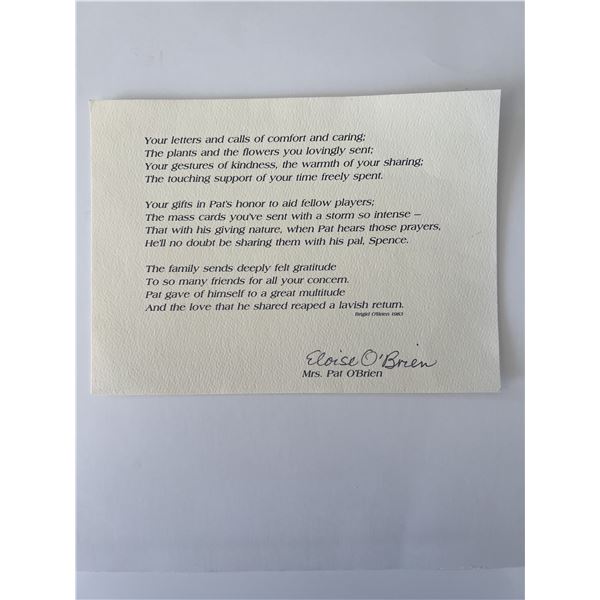 Your letters and calls of comfort and caring;
The plants and the flowers you lovingly sent;
Your gestures of kindness, the warmth of your sharing;
The touching support of your time freely spent.
Your gifts in Pat's honor to aid fellow players;
The mass cards you've sent with a storm so intense –
That with his giving nature, when Pat hears those prayers,
He'll no doubt be sharing them with his pal, Spence.
The family sends deeply felt gratitude
To so many friends for all your concern.
Pat gave of himself to a great multitude
And the love that he shared reaped a lavish return.
Brigid O'Brien 1983
Eloise O'Brien
Mrs. Pat O'Brien